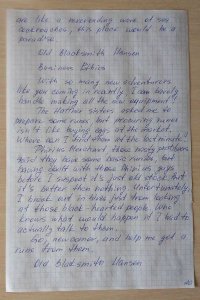 are like a neverending wave of sea
cockroaches, this place would be a
paradise.
Old Blacksmith Hansen
Business Ethics
With so many new adventurers
like you coming in recently, I can barely
handle making all the new equipment!!
The Mother sisters asked me to
prepare some runes, but procuring runes
isn't like buying eggs at the market.
Where can I find them at the last minute!!
Philius Merchant those nasty profiteers
said they have some basic runes, but
having dealt with those Philius guys
before I suspect it's just old stock that
it's better than nothing. Unfortunately,
I break out in hives just from looking
at those black-hearted people. Who
knows what would happen if I had to
actually talk to them.
So, newcomer, and help me get a
rune from them.
Old Blacksmith Hansen